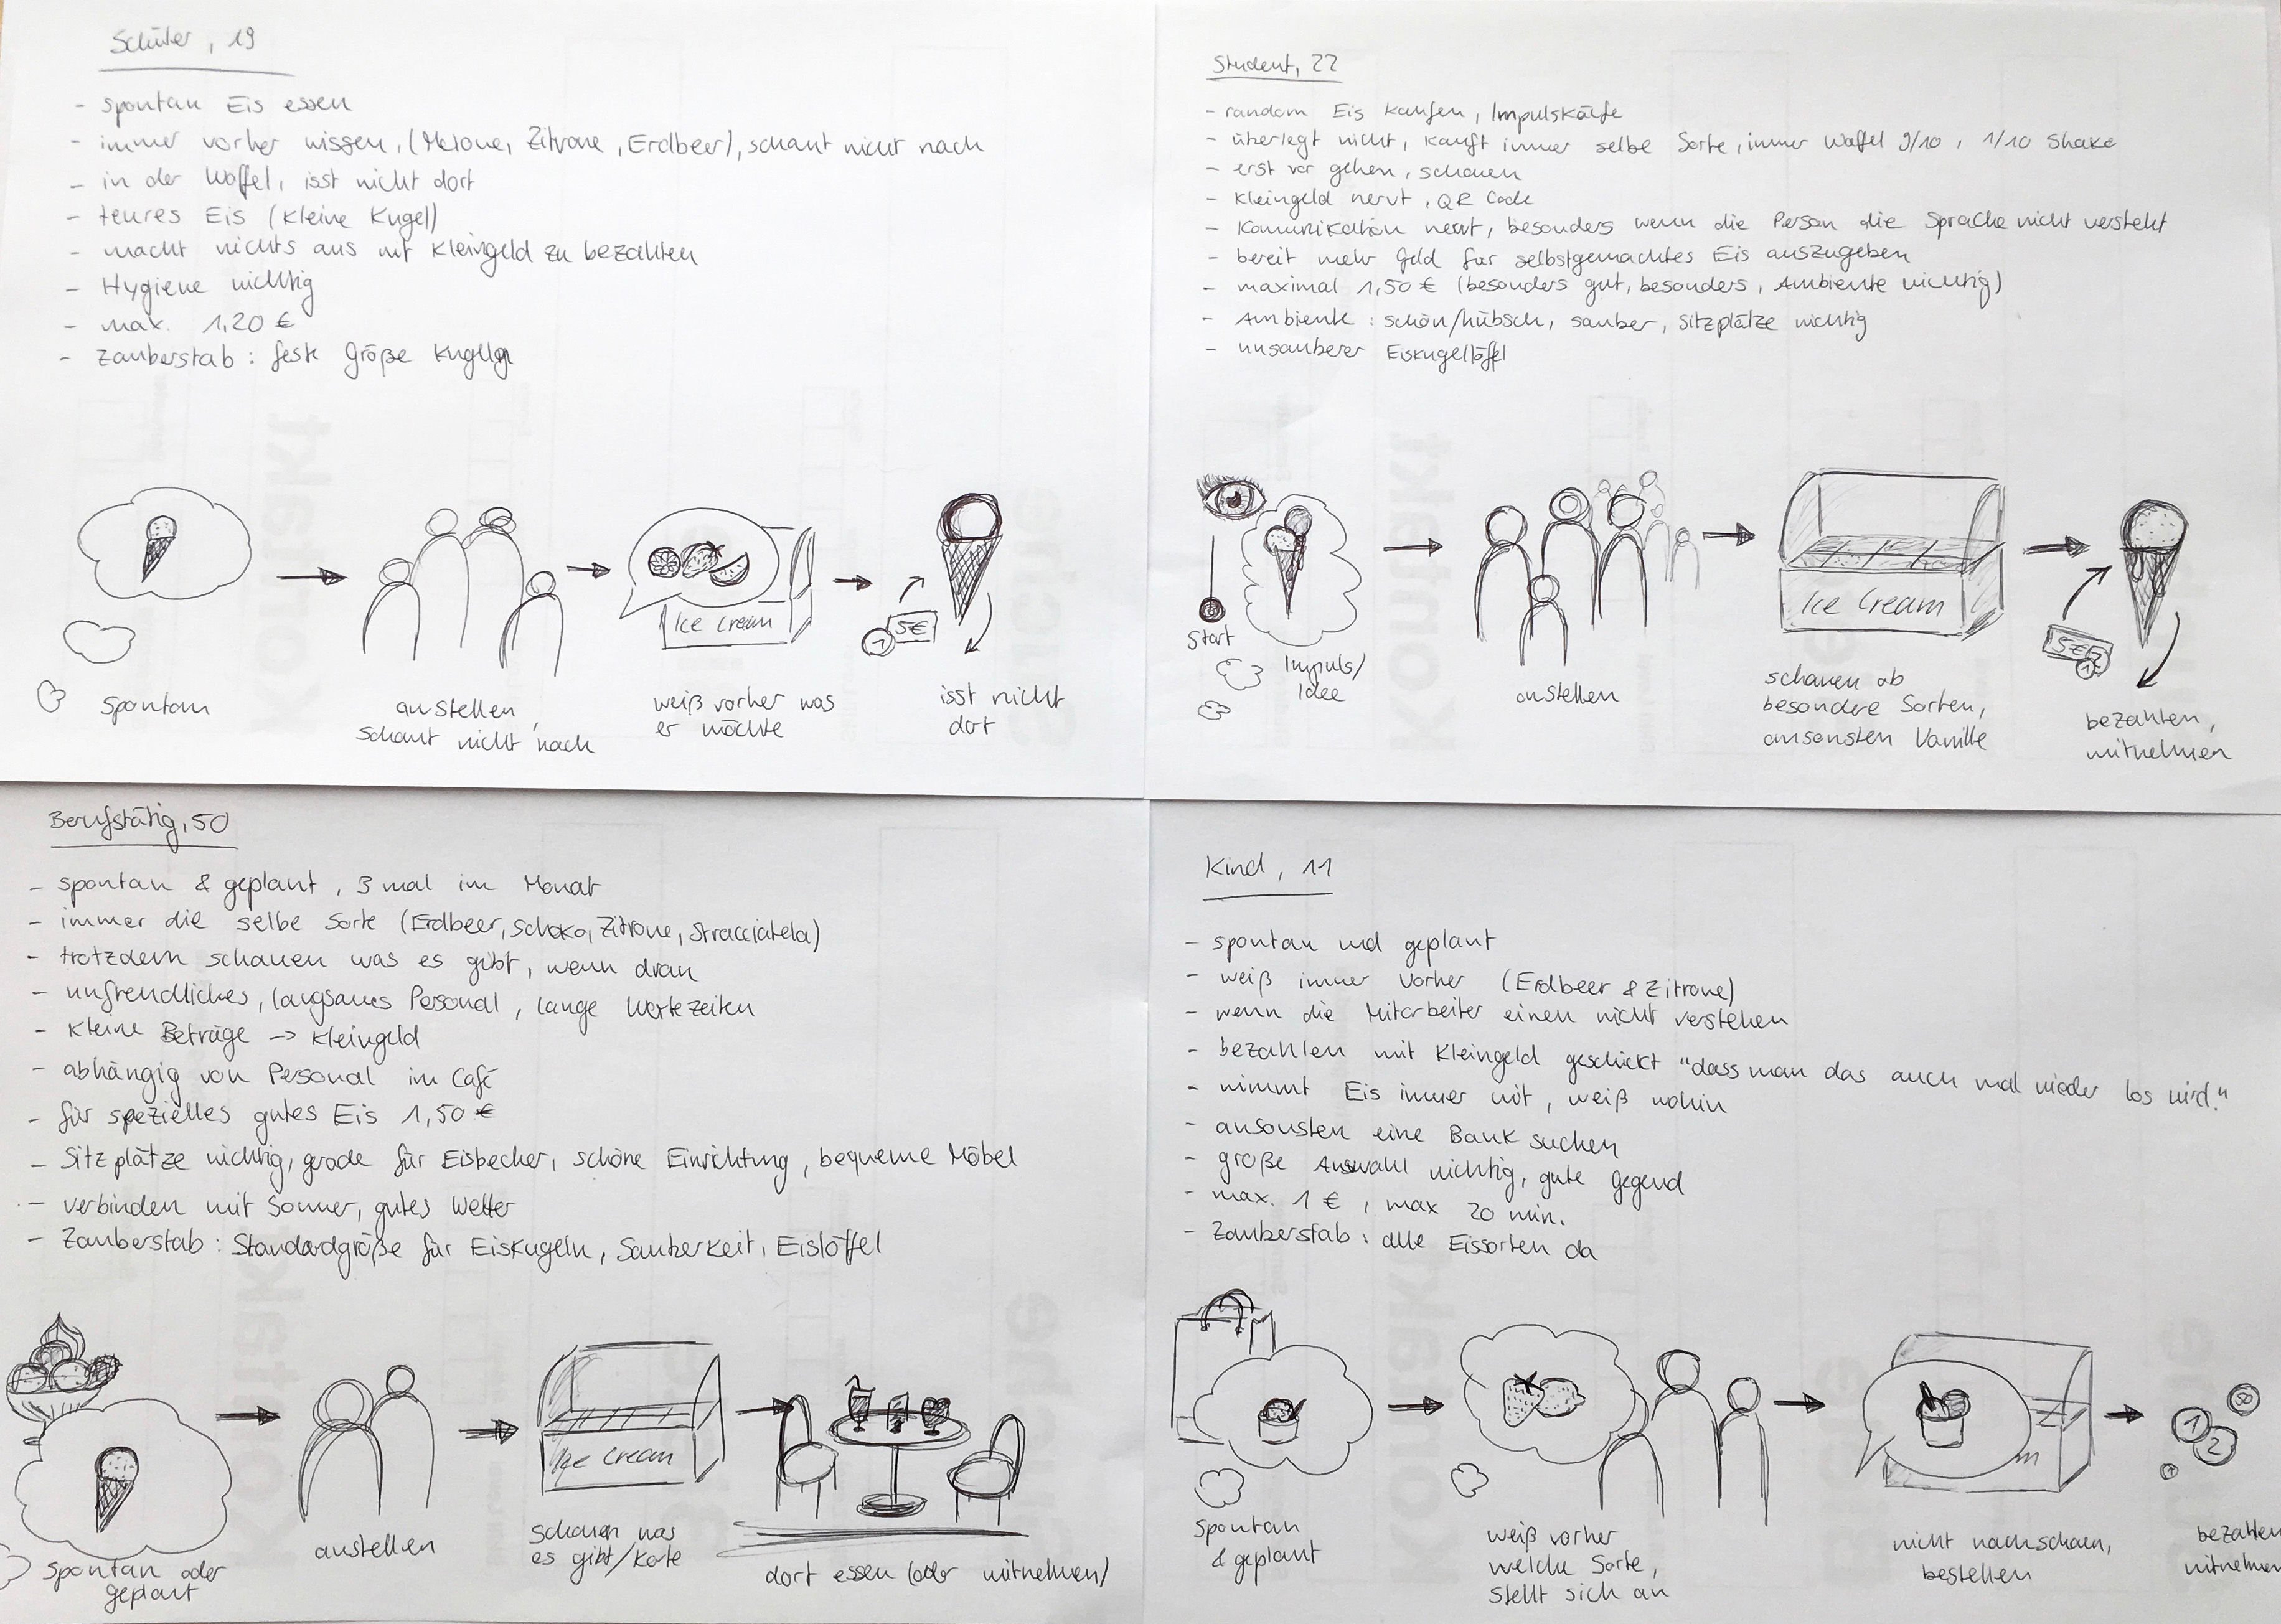 Schüler, 19
- spontan Eis essen
- immer vorher wissen, (Melone, Zitrone, Erdbeer), schaut nicht nach
- in der Waffel, isst nicht dort
- teures Eis (kleine Kugel)
- macht nichts aus mit Kleingeld zu bezahlen
- Hygiene wichtig
- max. 1,20 €
- Zauberstab: feste Größe Kugeln
Ice Cream
5€
1
spontan
anstellen,
schaut nicht nach
weiß vorher was
er möchte
isst nicht
dort
Student, 22
- random Eis kaufen, Impulskäufe
- überlegt nicht, kauft immer selbe Sorte, immer Waffel 9/10, 1/10 Shake
- erst vor gehen, schauen
- Kleingeld nervt, QR Code
- Komunikation nervt, besonders wenn die Person die Sprache nicht versteht
- bereit mehr Geld für selbstgemachtes Eis auszugeben
- maximal 1,50 € (besonders gut, besonders, Ambiente wichtig)
- Ambiente: schön/hübsch, sauber, Sitzplätze wichtig
- unsauberer Eiskugellöffel
Start
Impuls/
Idee
anstellen
Ice Cream
schauen ob
besondere Sorten,
ansonsten Vanille
5€
1
bezahlen,
mitnehmen
Berufstätig, 50
- spontan & geplant, 3 mal im Monat
- immer die selbe Sorte (Erdbeer, Schoko, Zitrone, Stracciatela)
- trotzdem schauen was es gibt, wenn dran
- unfreundliches, langsames Personal, lange Wartezeiten
- kleine Beträge -> Kleingeld
- abhängig von Personal im Café
- für spezielles gutes Eis 1,50 €
- Sitzplätze wichtig, grade für Eisbecher, schöne Einrichtung, bequeme Möbel
- verbinden mit Sommer, gutes Wetter
- Zauberstab: Standardgröße für Eiskugeln, Sauberkeit, Eislöffel
spontan oder
geplant
anstellen
Ice Cream
schauen was
es gibt/Karte
dort essen (oder mitnehmen)
Kind, 11
- spontan und geplant
- weiß immer vorher (Erdbeer & Zitrone)
- wenn die Mitarbeiter einen nicht verstehen
- bezahlen mit Kleingeld geschickt "dass man das auch mal wieder los wird."
- nimmt Eis immer mit, weiß wohin
- ansonsten eine Bank suchen
- große Auswahl wichtig, gute Gegend
- max. 1 €, max 20 min.
- Zauberstab: alle Eissorten da
spontan
& geplant
weiß vorher
welche Sorte,
stellt sich an
m
nicht nachschauen,
bestellen
1
2
50
1
bezahlen
mitnehmen